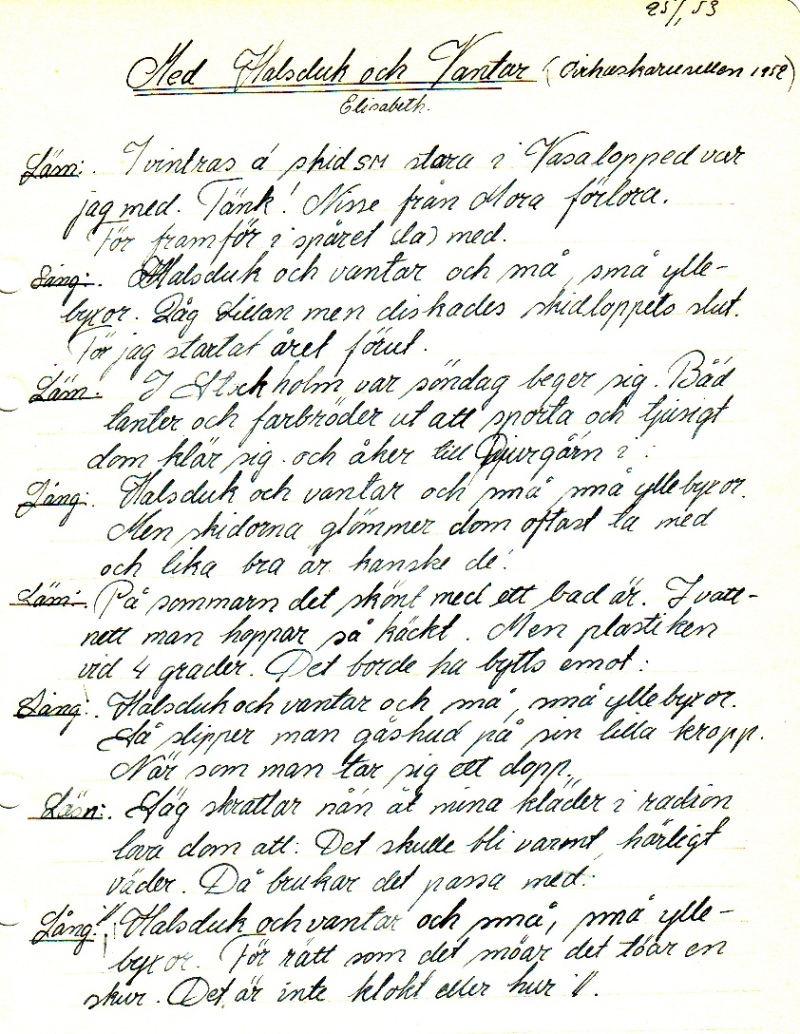 25/1 53
Med Halsduk och Vantar (Cirkuskarusellen 1952)
Elisabeth.
Läm: I vintras å skid SM stora i Vasalopped var
jag med. Tänk! Nisse från Mora förlora.
För framför i spåret (la) med.
Sång: Halsduk och vantar och må, små ylle-
byxor. Låg Lillan men diskades skidloppets slut.
För jag startat året förut.
Läm: I Stockholm var söndag beger sig. Båd
tanter och farbröder ut att sporta och tjusigt
dom klär sig och åker till Djurgårn i:
Sång: Halsduk och vantar och små små yllebyxor.
Men skidorna glömmer dom oftast ta med
och lika bra är kanske de!
Läm: På sommarn det skönt med ett bad är. I vatt-
nett man hoppar så käckt. Men plastiken
vid 4 grader. Det borde ha bytts emot:
Sång: Halsduk och vantar och små, små yllebyxor.
Så slipper man gåshud på sin lilla kropp.
När som man tar sig ett dopp.
Läsn: Säg skrattar nån åt mina kläder i radion
lova dom att: Det skulle bli varmt, härligt
väder. Då brukar det passa med:
Sång: //: Halsduk och vantar och små, små ylle-
byxor. För rätt som det möar det töar en
skur. Det är inte klokt eller hur ://.